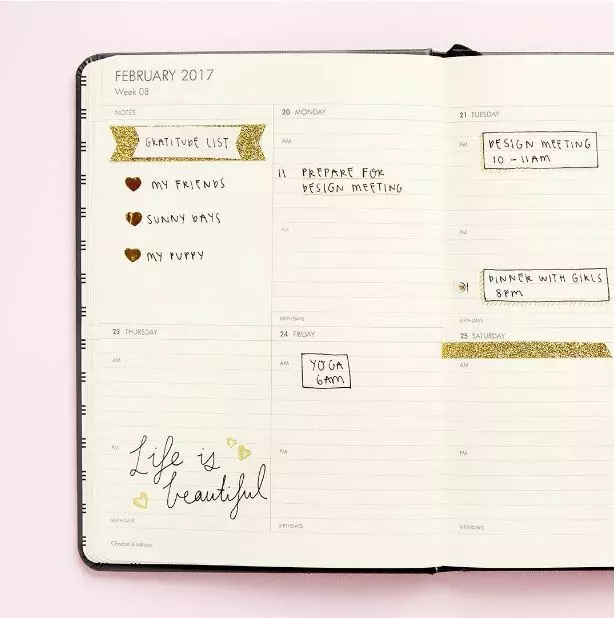 FEBRUARY 2017
Week 08
NOTES
GRATITUDE LIST
MY FRIENDS
SUNNY DAYS
MY PUPPY
20 MONDAY
AM
11 PREPARE FOR
DESIGN MEETING
PM
BIRTHDAYS
21 TUESDAY
AM
DESIGN MEETING
10 - 11AM
PM
DINNER WITH GIRLS
8PM
BIRTHDAYS
23 THURSDAY
AM
PM
Life is
beautiful
BIRTHDAYS
Choose kindness
24 FRIDAY
AM
YOGA
6AM
PM
BIRTHDAYS
25 SATURDAY
AM
PM
BIRTHDAYS